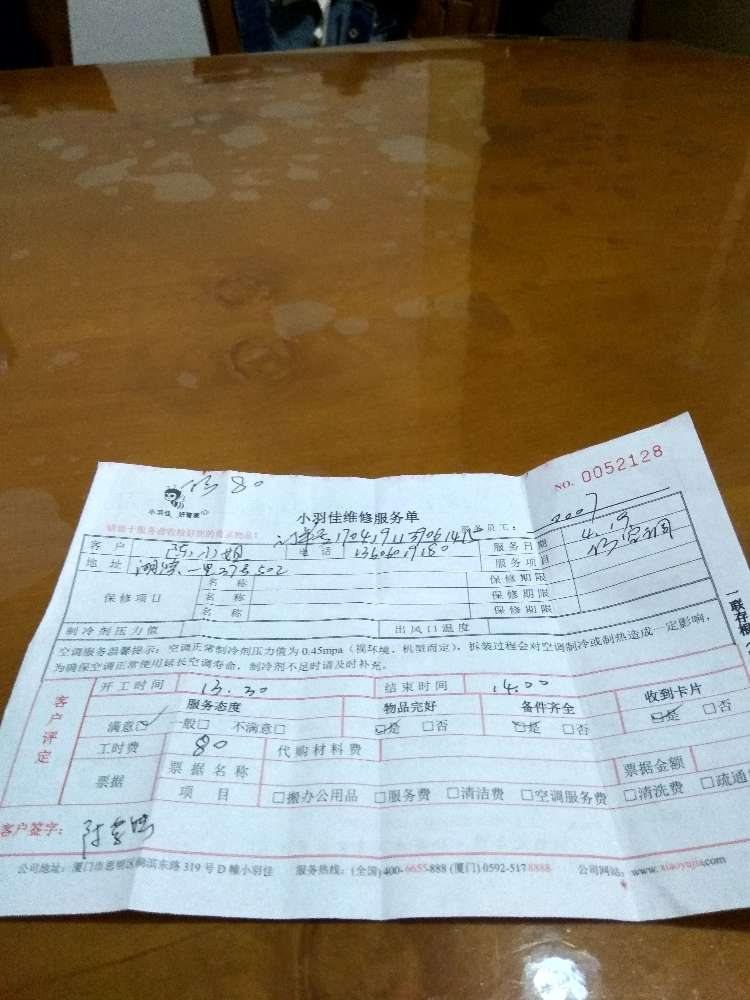 NO. 0052128
修80
小羽佳 好管家
小羽佳维修服务单
服务员工: 2007
170419113906145
客户 陈小姐 电话 13606019180 服务日期 4.19
地址 湖滨一里27号502 服务项目 修空调
保修项目 名称 保修期限
名称 保修期限
名称 保修期限
制冷剂压力值 出风口温度
空调服务温馨提示：空调正常制冷剂压力值为0.45mpa（视环境、机型而定），拆装过程会对空调制冷或制热造成一定影响，
为确保空调正常使用延长空调寿命，制冷剂不足时请及时补充。
一联存根
客户评定
开工时间 13.30 结束时间 14.00
服务态度 物品完好 备件齐全 收到卡片
满意☑ 一般□ 不满意□ □是 □否 □是 □否 □是 □否
工时费 80 代购材料费
票据 票据名称 票据金额
项目 □搬办公用品 □服务费 □清洁费 □空调服务费 □清洗费 □疏通
客户签字：
公司地址：厦门市思明区 东路319号D幢小羽佳 服务热线：(全国)400-6655-888 (厦门)0592-5178888 公司网站：www.xiaoyujia.com